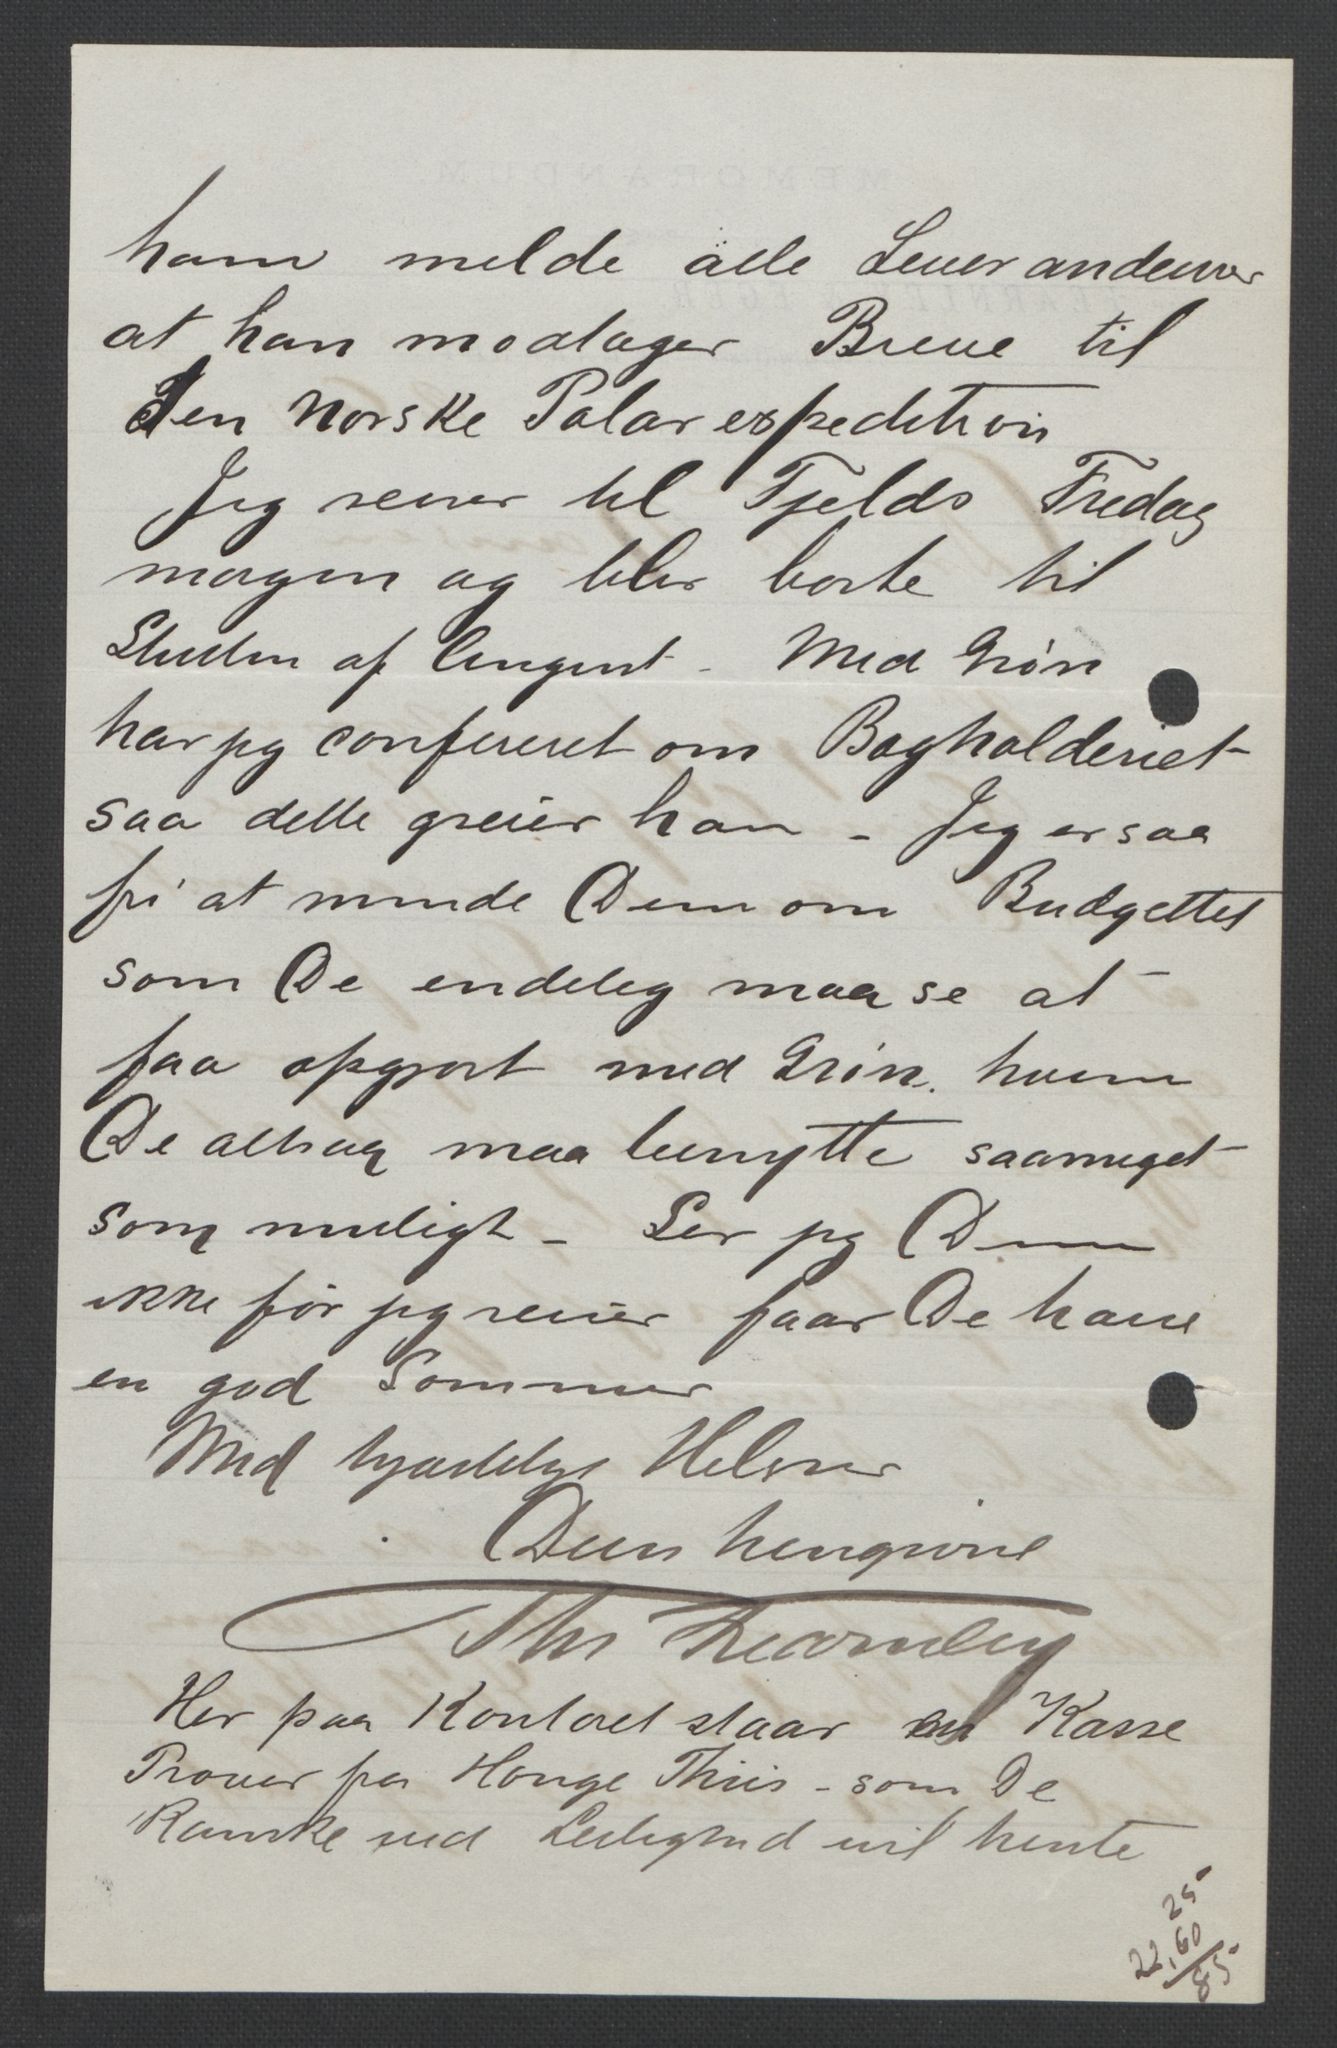 ham melde alle Leverandeurer
at han modtager Breve til
Den Norske Polarexpedition
Jeg reiser til Fjelds Fredag
morgen og blir borte til
Slutten af August - Med Grøn
har jeg confereret om Bogholderiet
saa dette greier han - Jeg er saa
fri at minde Dem om Budgettet
som De endelig maa se at
faa opgjort med Grøn. hvem
De altsaa maa benytte saameget
som muligt - Ser jeg Dem
ikke før jeg reiser faar De have
en god Sommer
Med hjærtelige Hilsner
Deres hengivne
Ths Fearnley
Her paa Kontoret staar en Kasse
Prøver fra Thiis - som De
Kanske ved Leilighed vil hente
25
22,60
85
MEMORANDUM